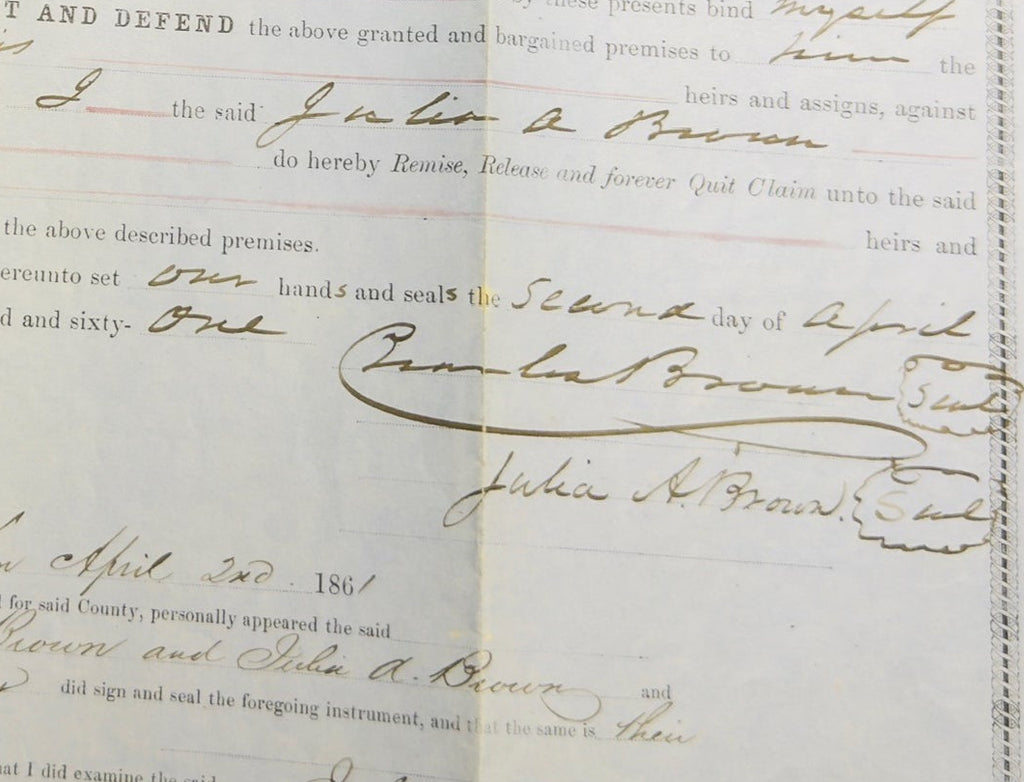 by these presents bind myself
T AND DEFEND the above granted and bargained premises to him the
is heirs and assigns, against
I the said Julia A Brown
do hereby Remise, Release and forever Quit Claim unto the said
heirs and
the above described premises.
ereunto set our hands and seals the Second day of April
d and sixty- One
Charles Brown Seal
Julia A. Brown. Seal
April 2nd 1861
for said County, personally appeared the said
Brown and Julia A. Brown and
did sign and seal the foregoing instrument, and that the same is their
hat I did examine the said